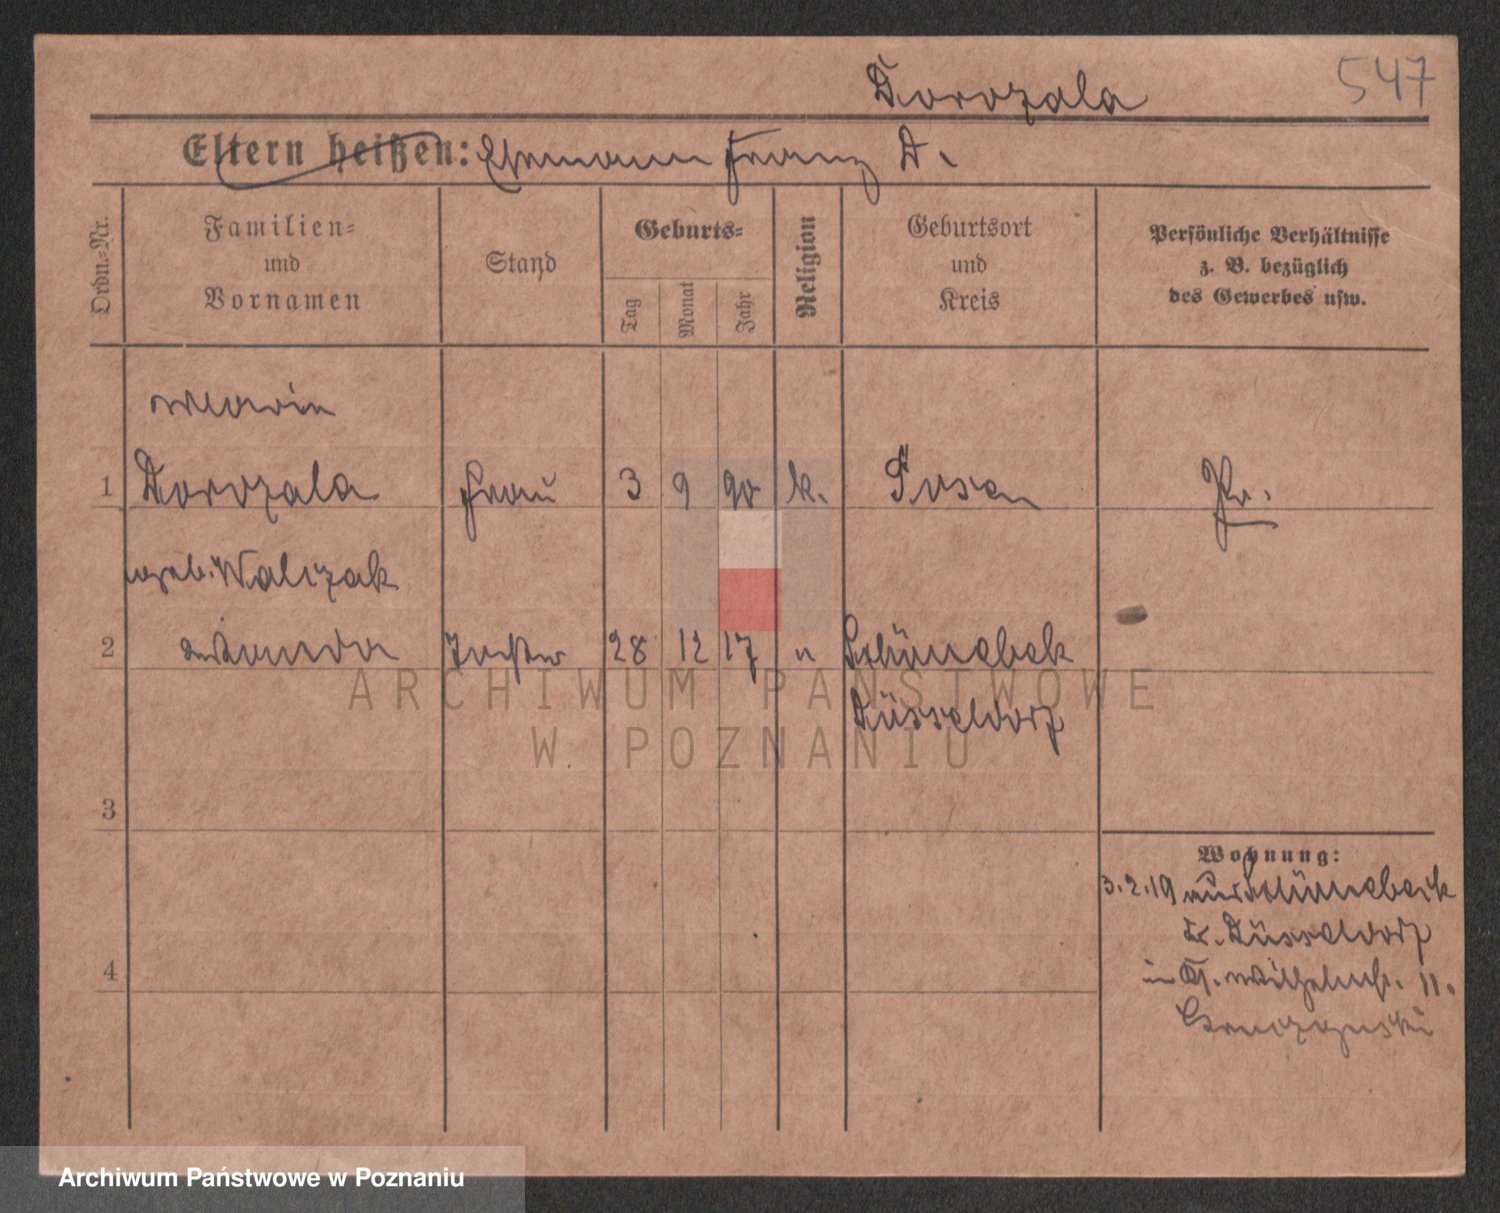 547
Dorozala
Eltern heißen: Ehemann Franz D.
Ordn.-Nr.
Familien-
und
Vornamen
Stand
Geburts-
Tag
Monat
Jahr
Religion
Geburtsort
und
Kreis
Persönliche Verhältnisse
z. B. bezüglich
des Gewerbes usw.
Marie
1 Dorozala Frau 3 9 90 k. Posen Pr.
geb. Walczak
2 Wanda Tochter 28 12 17 " Schönebek
Düsseldorf
3
4
Wohnung:
3.2.19 aus Schönebeck
Kr. Düsseldorf
in Wilhelmstr. 11.
ARCHIWUM PAŃSTWOWE
W POZNANIU
Archiwum Państwowe w Poznaniu